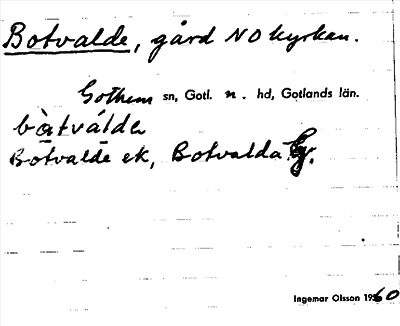 Botvalde, gård NO kyrkan.
Gothem sn, Gotl. n. hd, Gotlands län.
bòtválda
Botvalde ek, Botvalda
Ingemar Olsson 1960